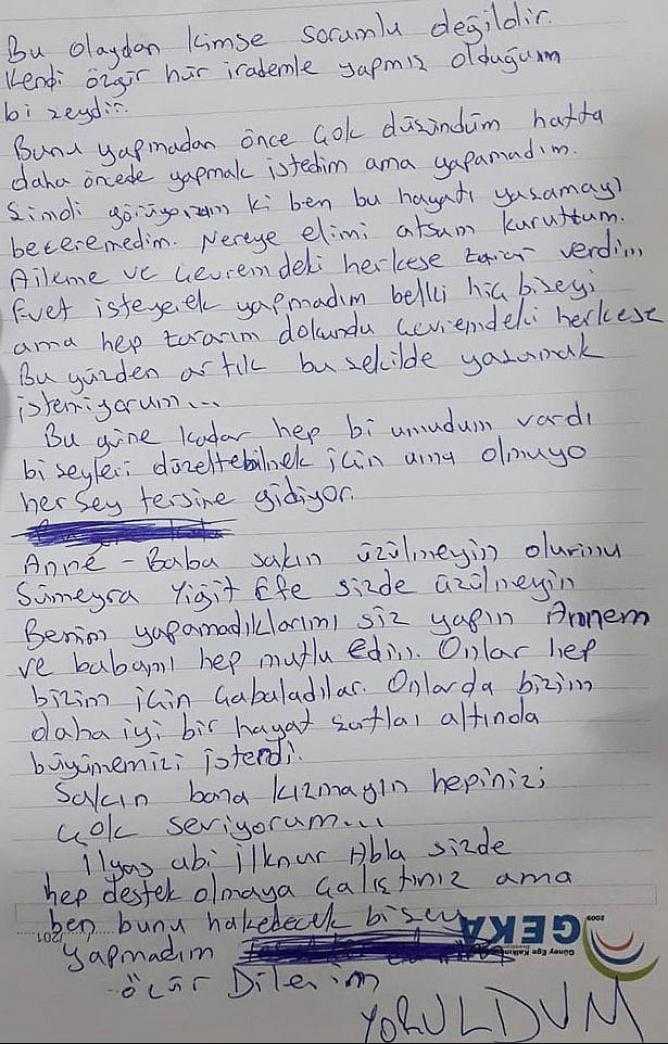 Bu olaydan kimse sorumlu değildir.
Kendi özgür hür irademle yapmış olduğum
bi şeydir.
Bunu yapmadan önce çok düşündüm hatta
daha öncede yapmak istedim ama yapamadım.
Şimdi görüyorum ki ben bu hayatı yaşamayı
beceremedim. Nereye elimi atsam kuruttum.
Aileme ve çevremdeki herkese zarar verdim
Evet isteyerek yapmadım belki hiç bişeyi
ama hep zararım dokundu çevremdeki herkese
Bu yüzden artık bu şekilde yaşamak
istemiyorum...
Bu güne kadar hep bi umudum vardı
bi şeyleri düzeltebilmek için ama olmuyo
herşey tersine gidiyor.
Anne - Baba sakın üzülmeyin olurmu
Sümeyra Yiğit Efe sizde üzülmeyin
Benim yapamadıklarımı siz yapın Annem
ve babamı hep mutlu edin. Onlar hep
bizim için çabaladılar. Onlarda bizim
daha iyi bir hayat şartları altında
büyümemizi isterdi.
Sakın bana kızmayın hepinizi
çok seviyorum...
İlyas abi ilknur Abla sizde
hep destek olmaya çalıştınız ama
ben bunu hakedecek bişey
yapmadım
özür Dilerim
YORULDUM
GEKA
2009
Güney Ege Kalkınma
...../201